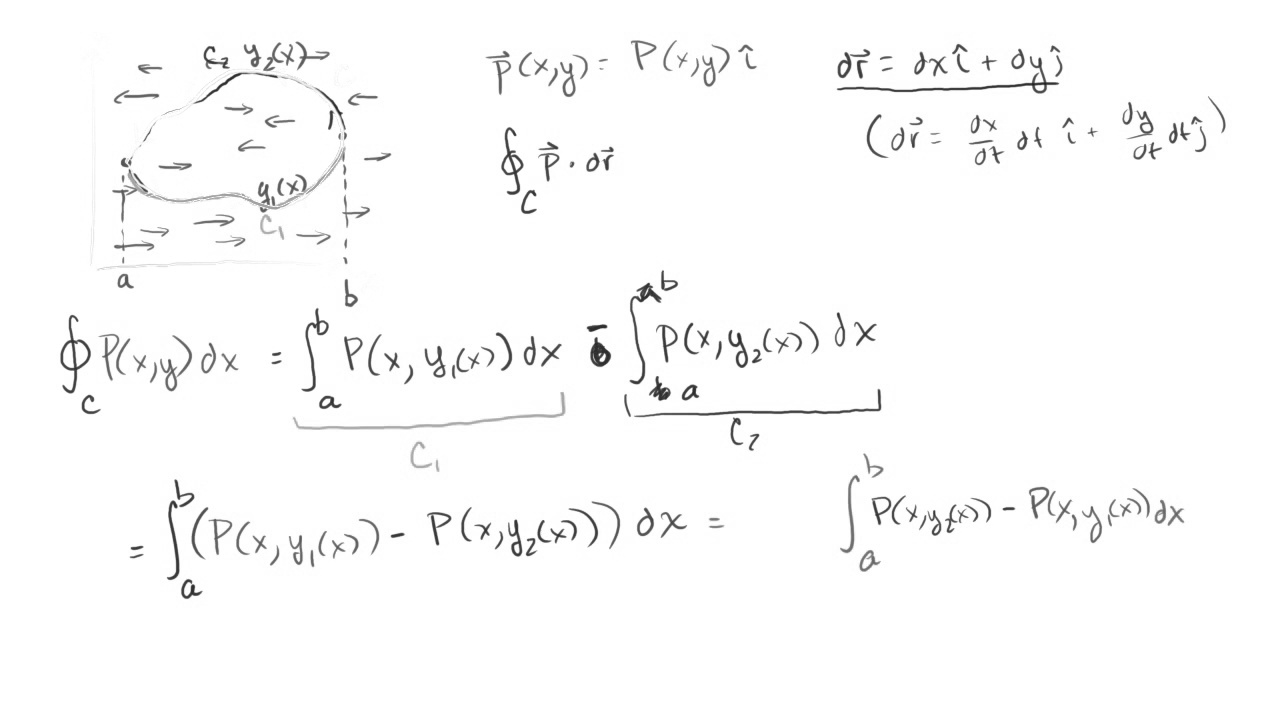 C₂ y₂(x)
y₁(x)
C₁
a b
P⃗(x,y) = P(x,y) î
dr⃗ = dx î + dy ĵ
(dr⃗ = dx/dt dt î + dy/dt dt ĵ)
∮_C P⃗ · dr⃗
∮_C P(x,y) dx = ∫_a^b P(x, y₁(x)) dx - ∫_a^b P(x, y₂(x)) dx
C₁ C₂
= ∫_a^b (P(x, y₁(x)) - P(x, y₂(x))) dx =
∫_a^b P(x, y₂(x)) - P(x, y₁(x)) dx